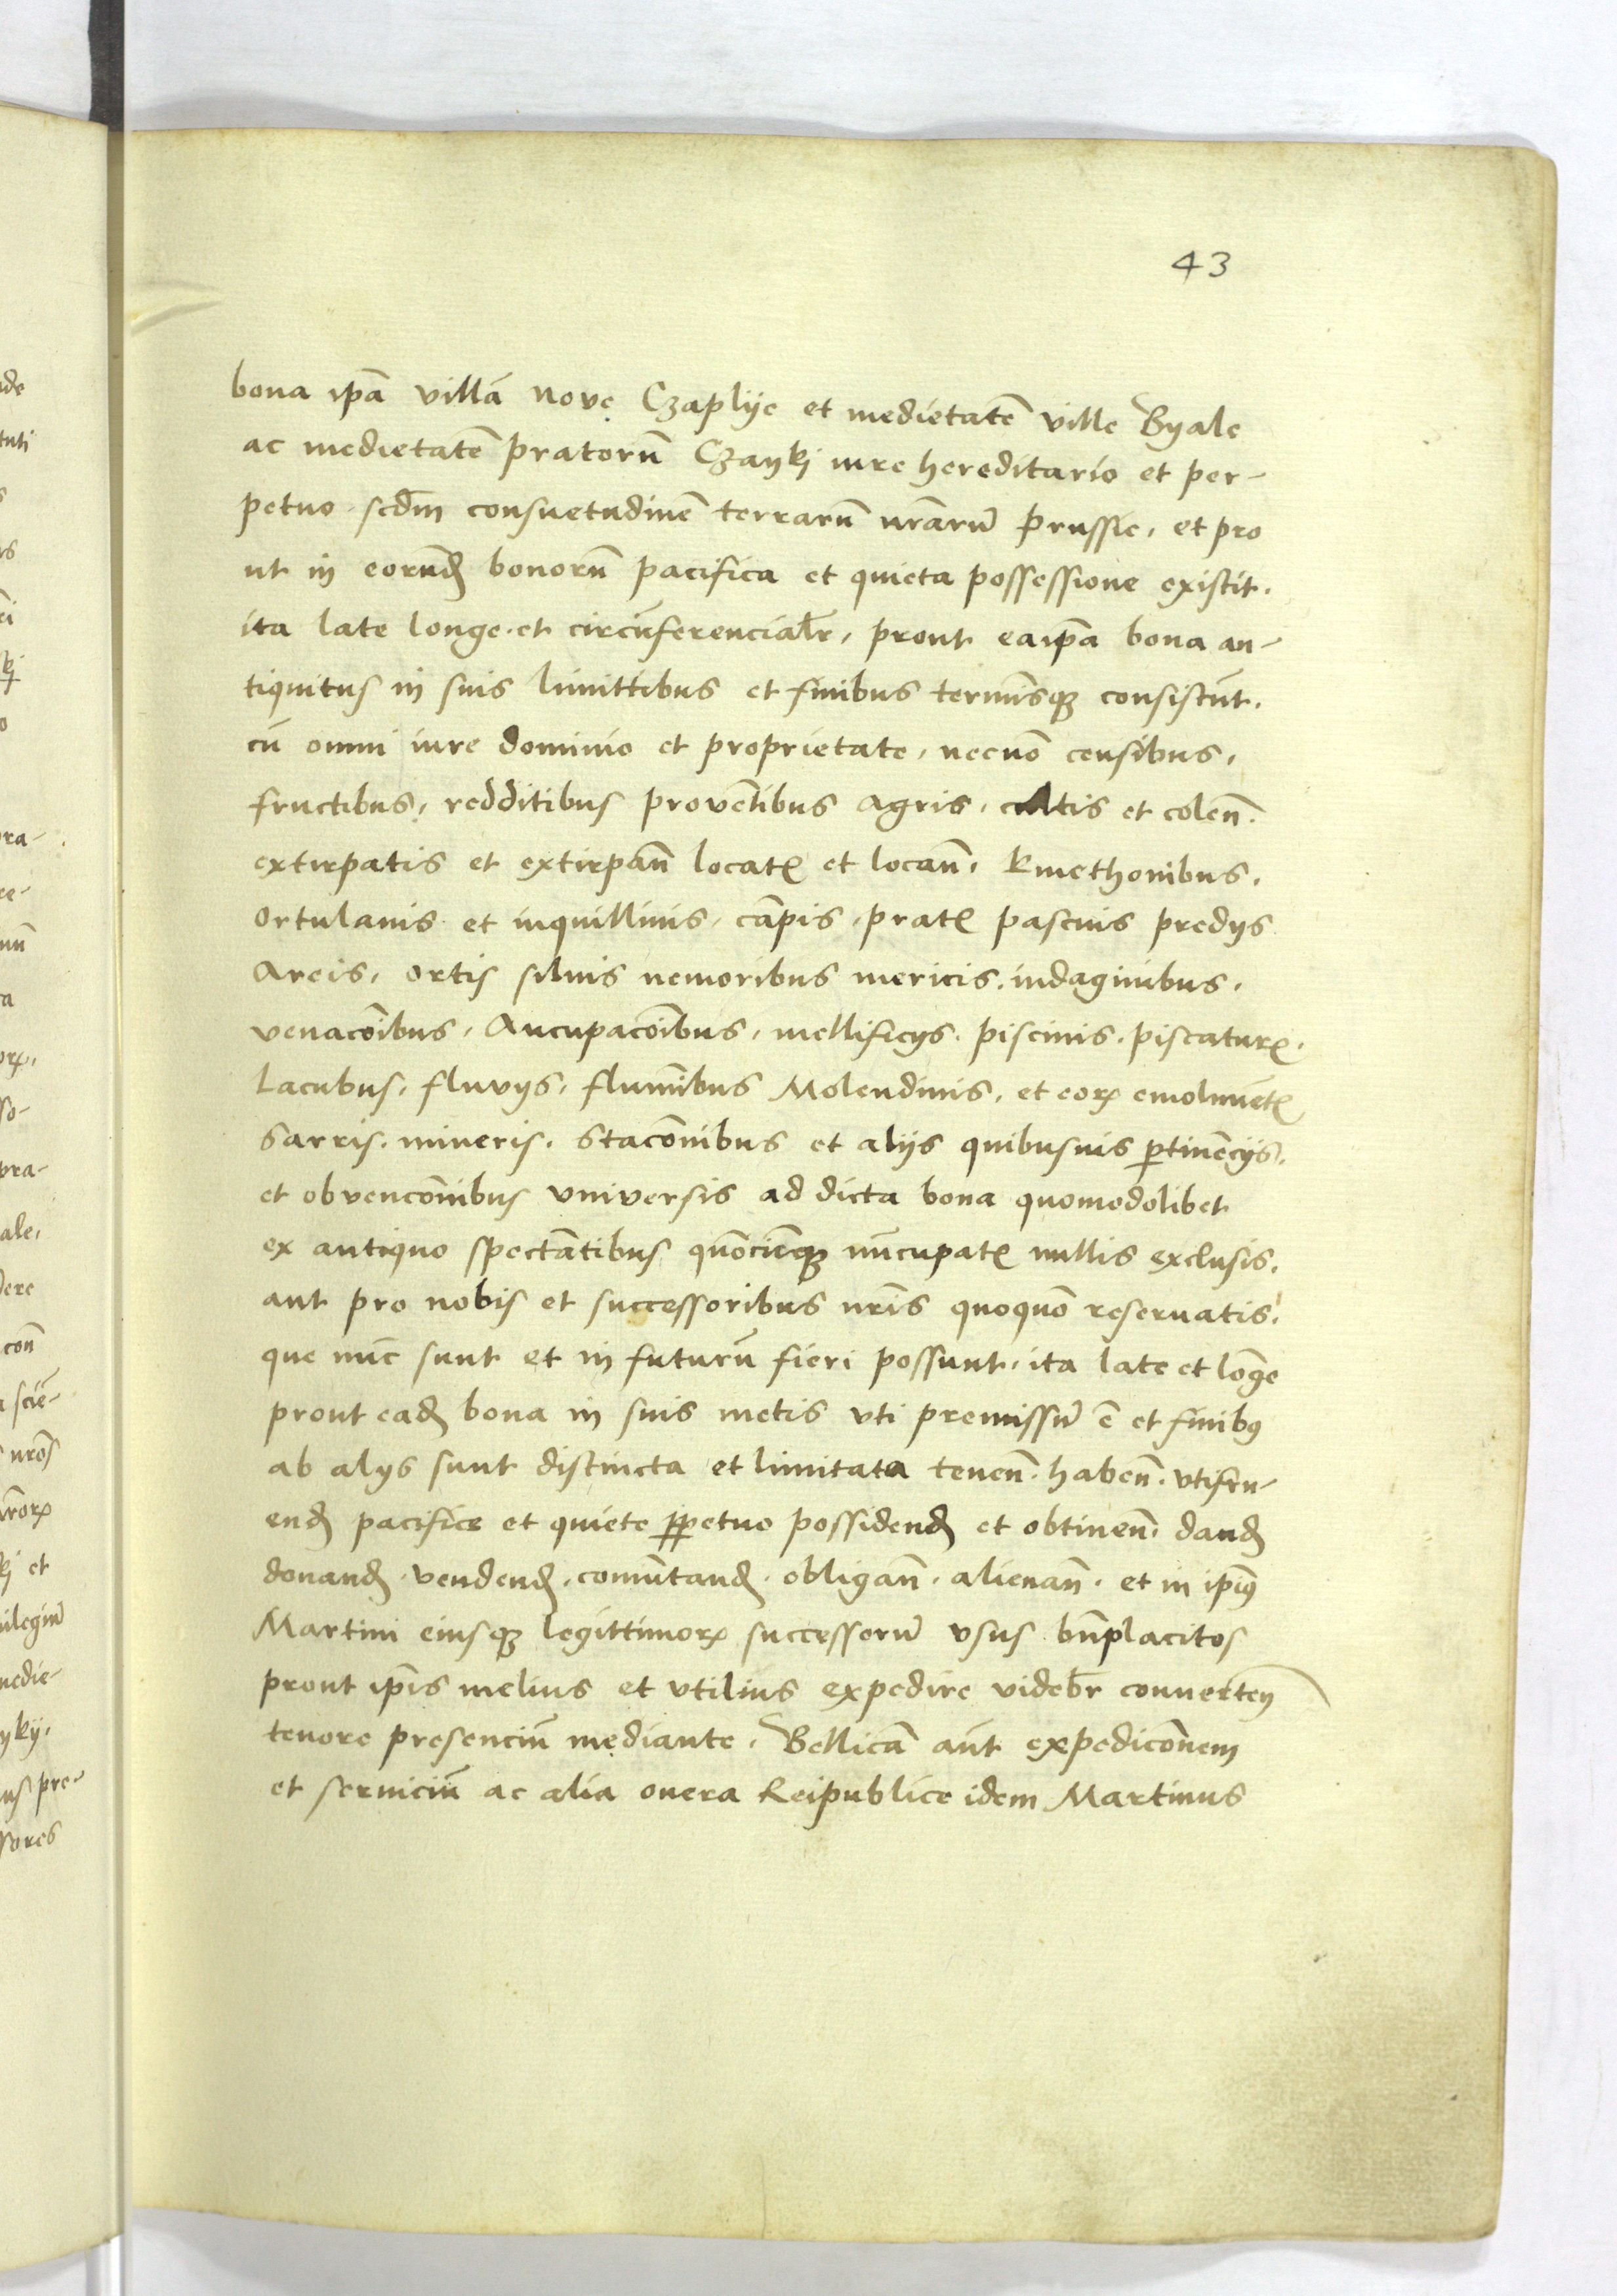 43
bona ip̄a villā nove Czaplije et medietatē ville Byale
ac medietatē pratorū Czaykj iure hereditario et per-
petuo scd̄m consuetudinē terrarū nr̄arū Prussie, et pro
ut in eorūd̄ bonorū pacifica et quieta possessione existit.
ita late longe et circūferencialr̄, prout eaip̄a bona an-
tiquitus in suis limittibus et finibus termīsqȝ consistūt.
cū omni iure dominio et proprietate, necnō censibus,
fructibus, redditibus provētibus Agris, cultis et colen̄.
extirpatis et extirpan̄ locatꝭ et locan̄, kmethonibus,
Ortulanis et inquillinis, cāpis, pratꝭ pascuis predijs
Areis, Ortis silvis nemoribus mericis, indaginibus,
venacōibus, Aucupacōibus, mellificijs, piscinis, piscaturꝭ.
Lacubus, fluvijs, flumībus Molendinis, et eorꝝ emolumētꝭ
Sarris, mineris, Stacōnibus et alijs quibusuis ꝑtinēcijs,
et obvencōnibus vniversis ad dicta bona quomodolibet
ex antiquo spectātibus quōcūqȝ nūcupatꝭ nullis exclusis.
aut pro nobis et successoribus nr̄is quoquō reservatis,
que nūc sunt et in futurū fieri possunt, ita late et lōge
prout ead̄ bona in suis metis vti premissū ē et finibꝰ
ab alijs sunt distincta et limitata tenen̄. haben̄. vtifru-
end̄ pacifice et quiete ꝑpetuo possidend̄ et obtinen̄. dand̄
donand̄. vendend̄. comūtand̄. obligan̄. alienan̄. et in ip̄iꝰ
Martini eiusqȝ legittimorꝝ successorū vsus bn̄placitos
prout ip̄is melius et vtilius expedire videbr̄ converten̄
tenore presenciū mediante. Bellicā aūt expedicōnem
et serviciū ac alia onera Reipublice idem Martinus